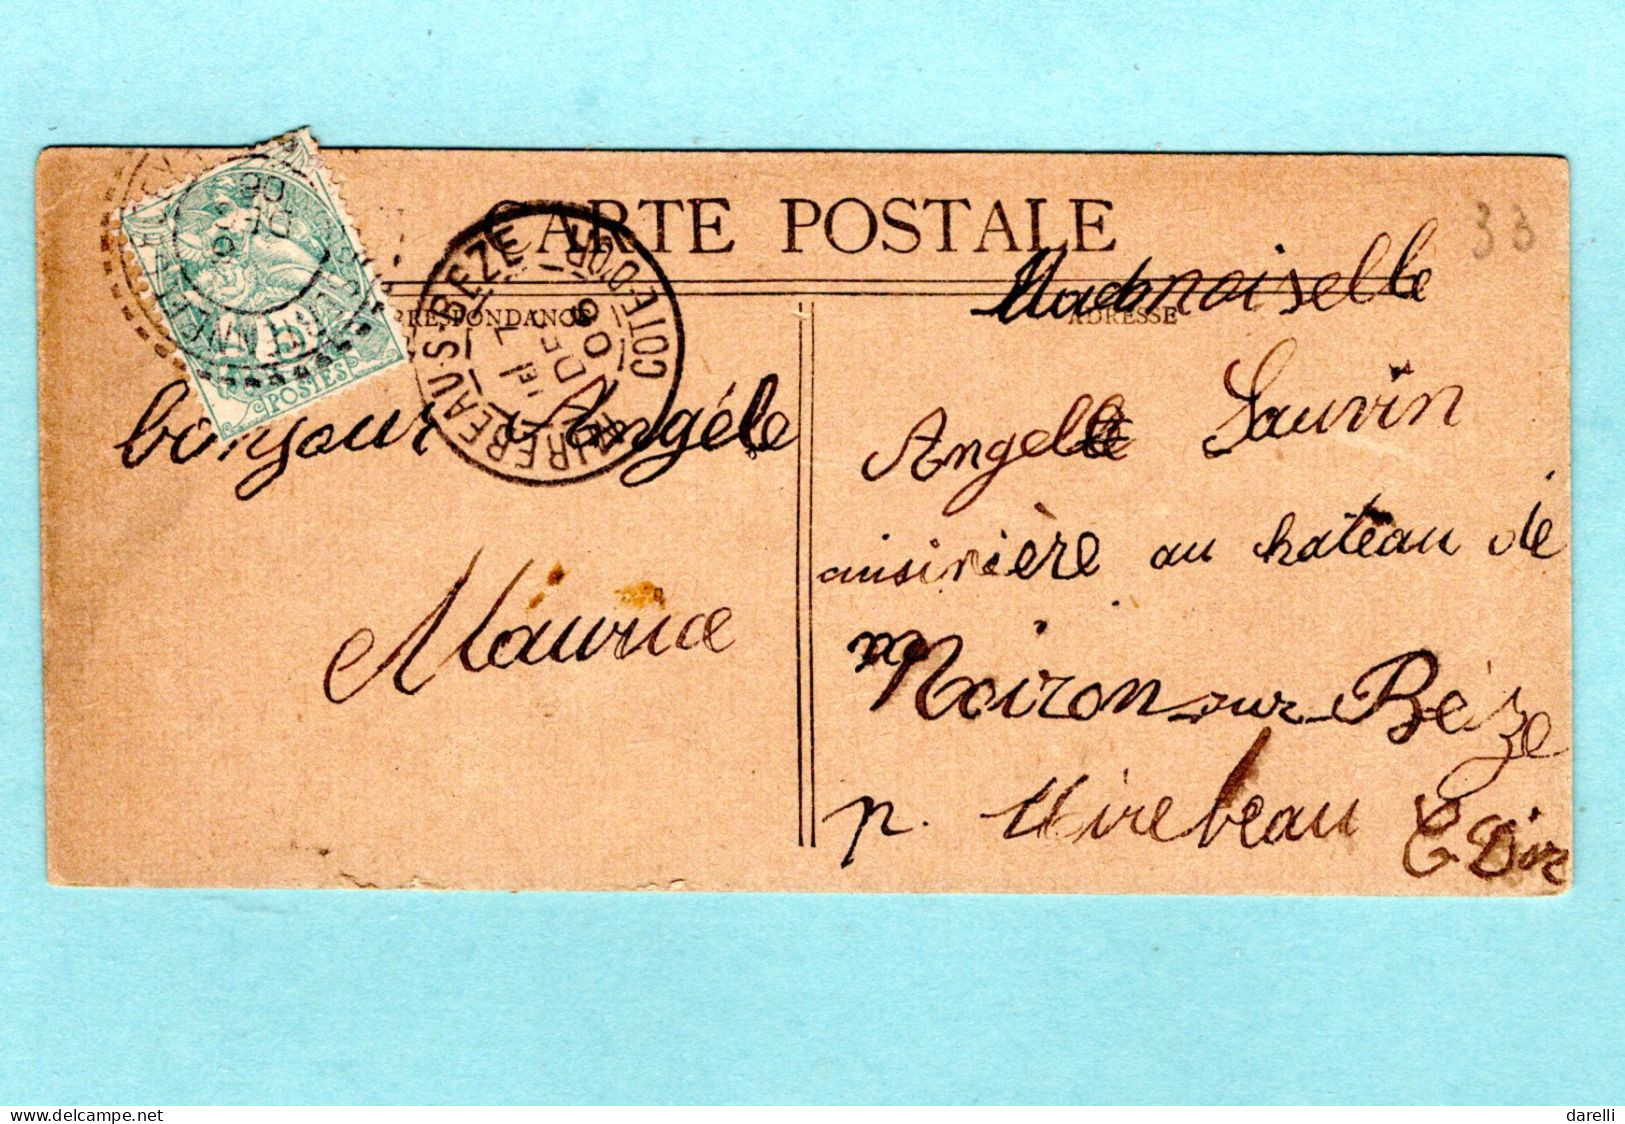 CARTE POSTALE
33
RESPONDANCE
ADRESSE
MIREBEAU-S-BEZE
COTE-D'OR
7
DEC
06
POSTES
bonjour Angéle
Maurice
Madmoiselle
Angele Sauvin
cuisinière au chateau de
Noiron-sur-Bèze
p. Mirebeau C D'or
darelli